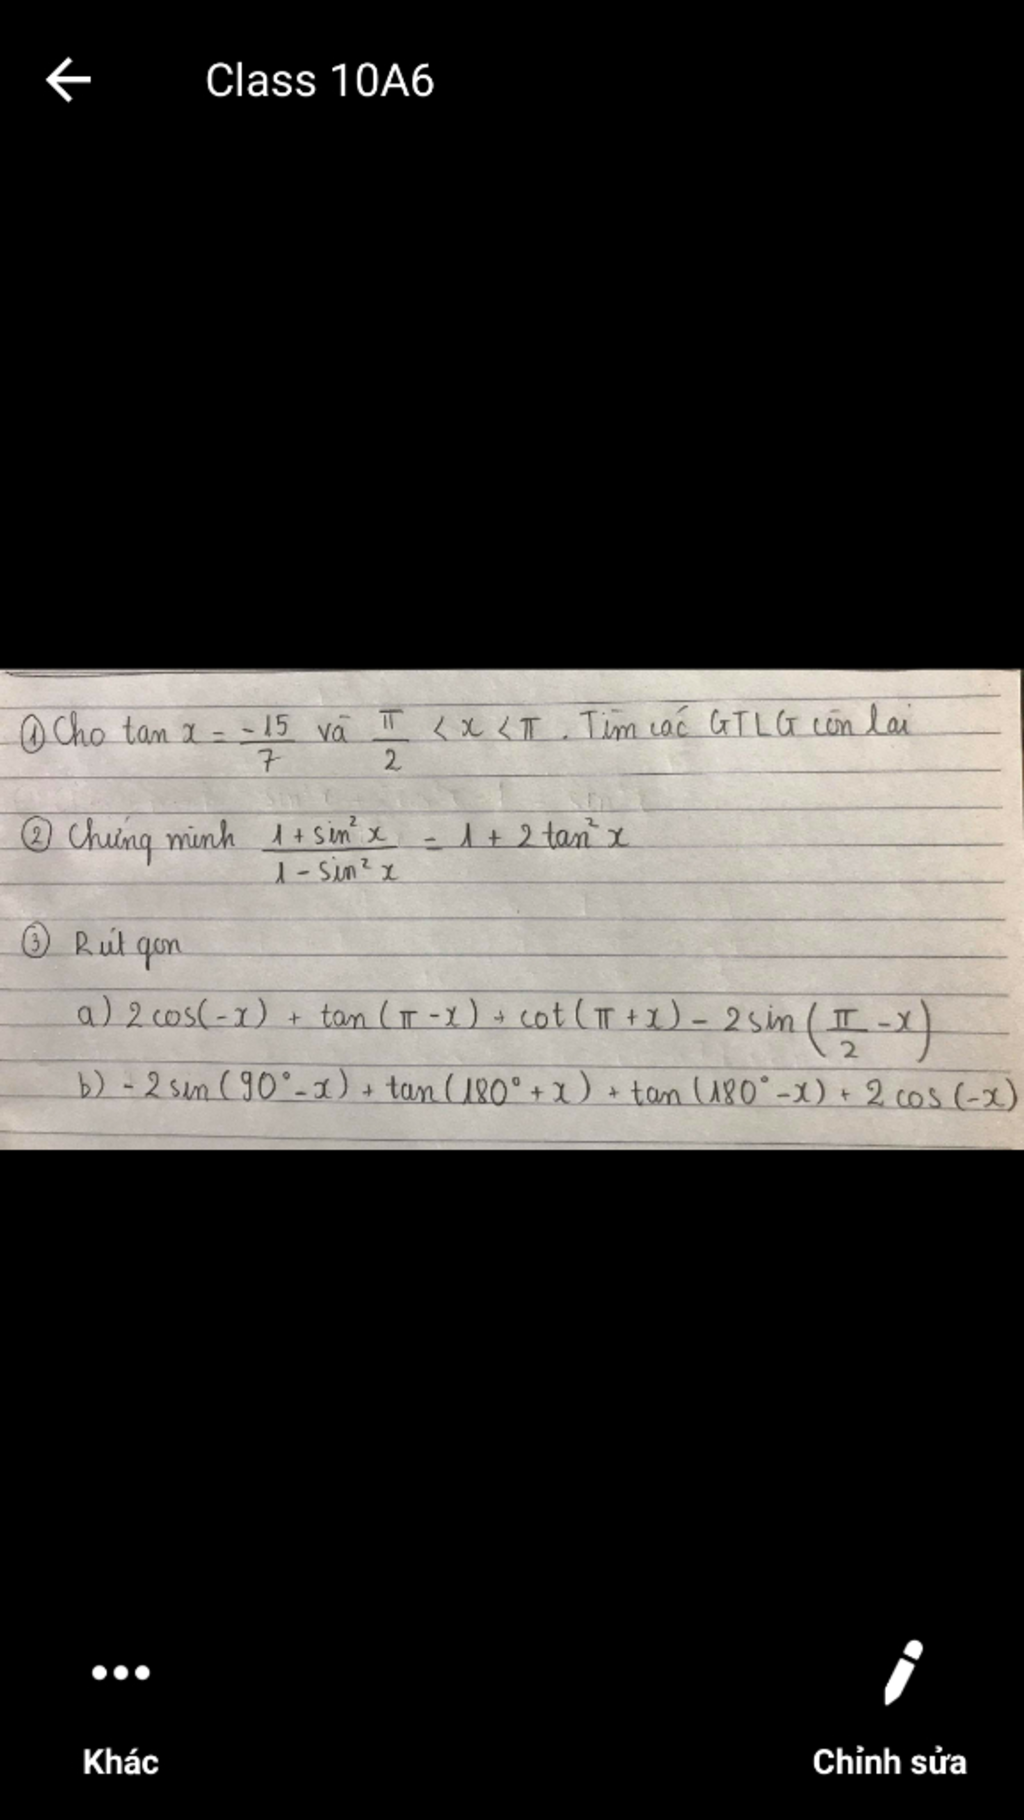 Class 10A6
① Cho tan x = -15/7 và π/2 < x < π. Tìm các GTLG còn lại
② Chứng minh (1 + sin² x)/(1 - sin² x) = 1 + 2 tan² x
③ Rút gọn
a) 2 cos(-x) + tan(π - x) + cot(π + x) - 2 sin(π/2 - x)
b) - 2 sin(90° - x) + tan(180° + x) + tan(180° - x) + 2 cos(-x)
Khác
Chỉnh sửa